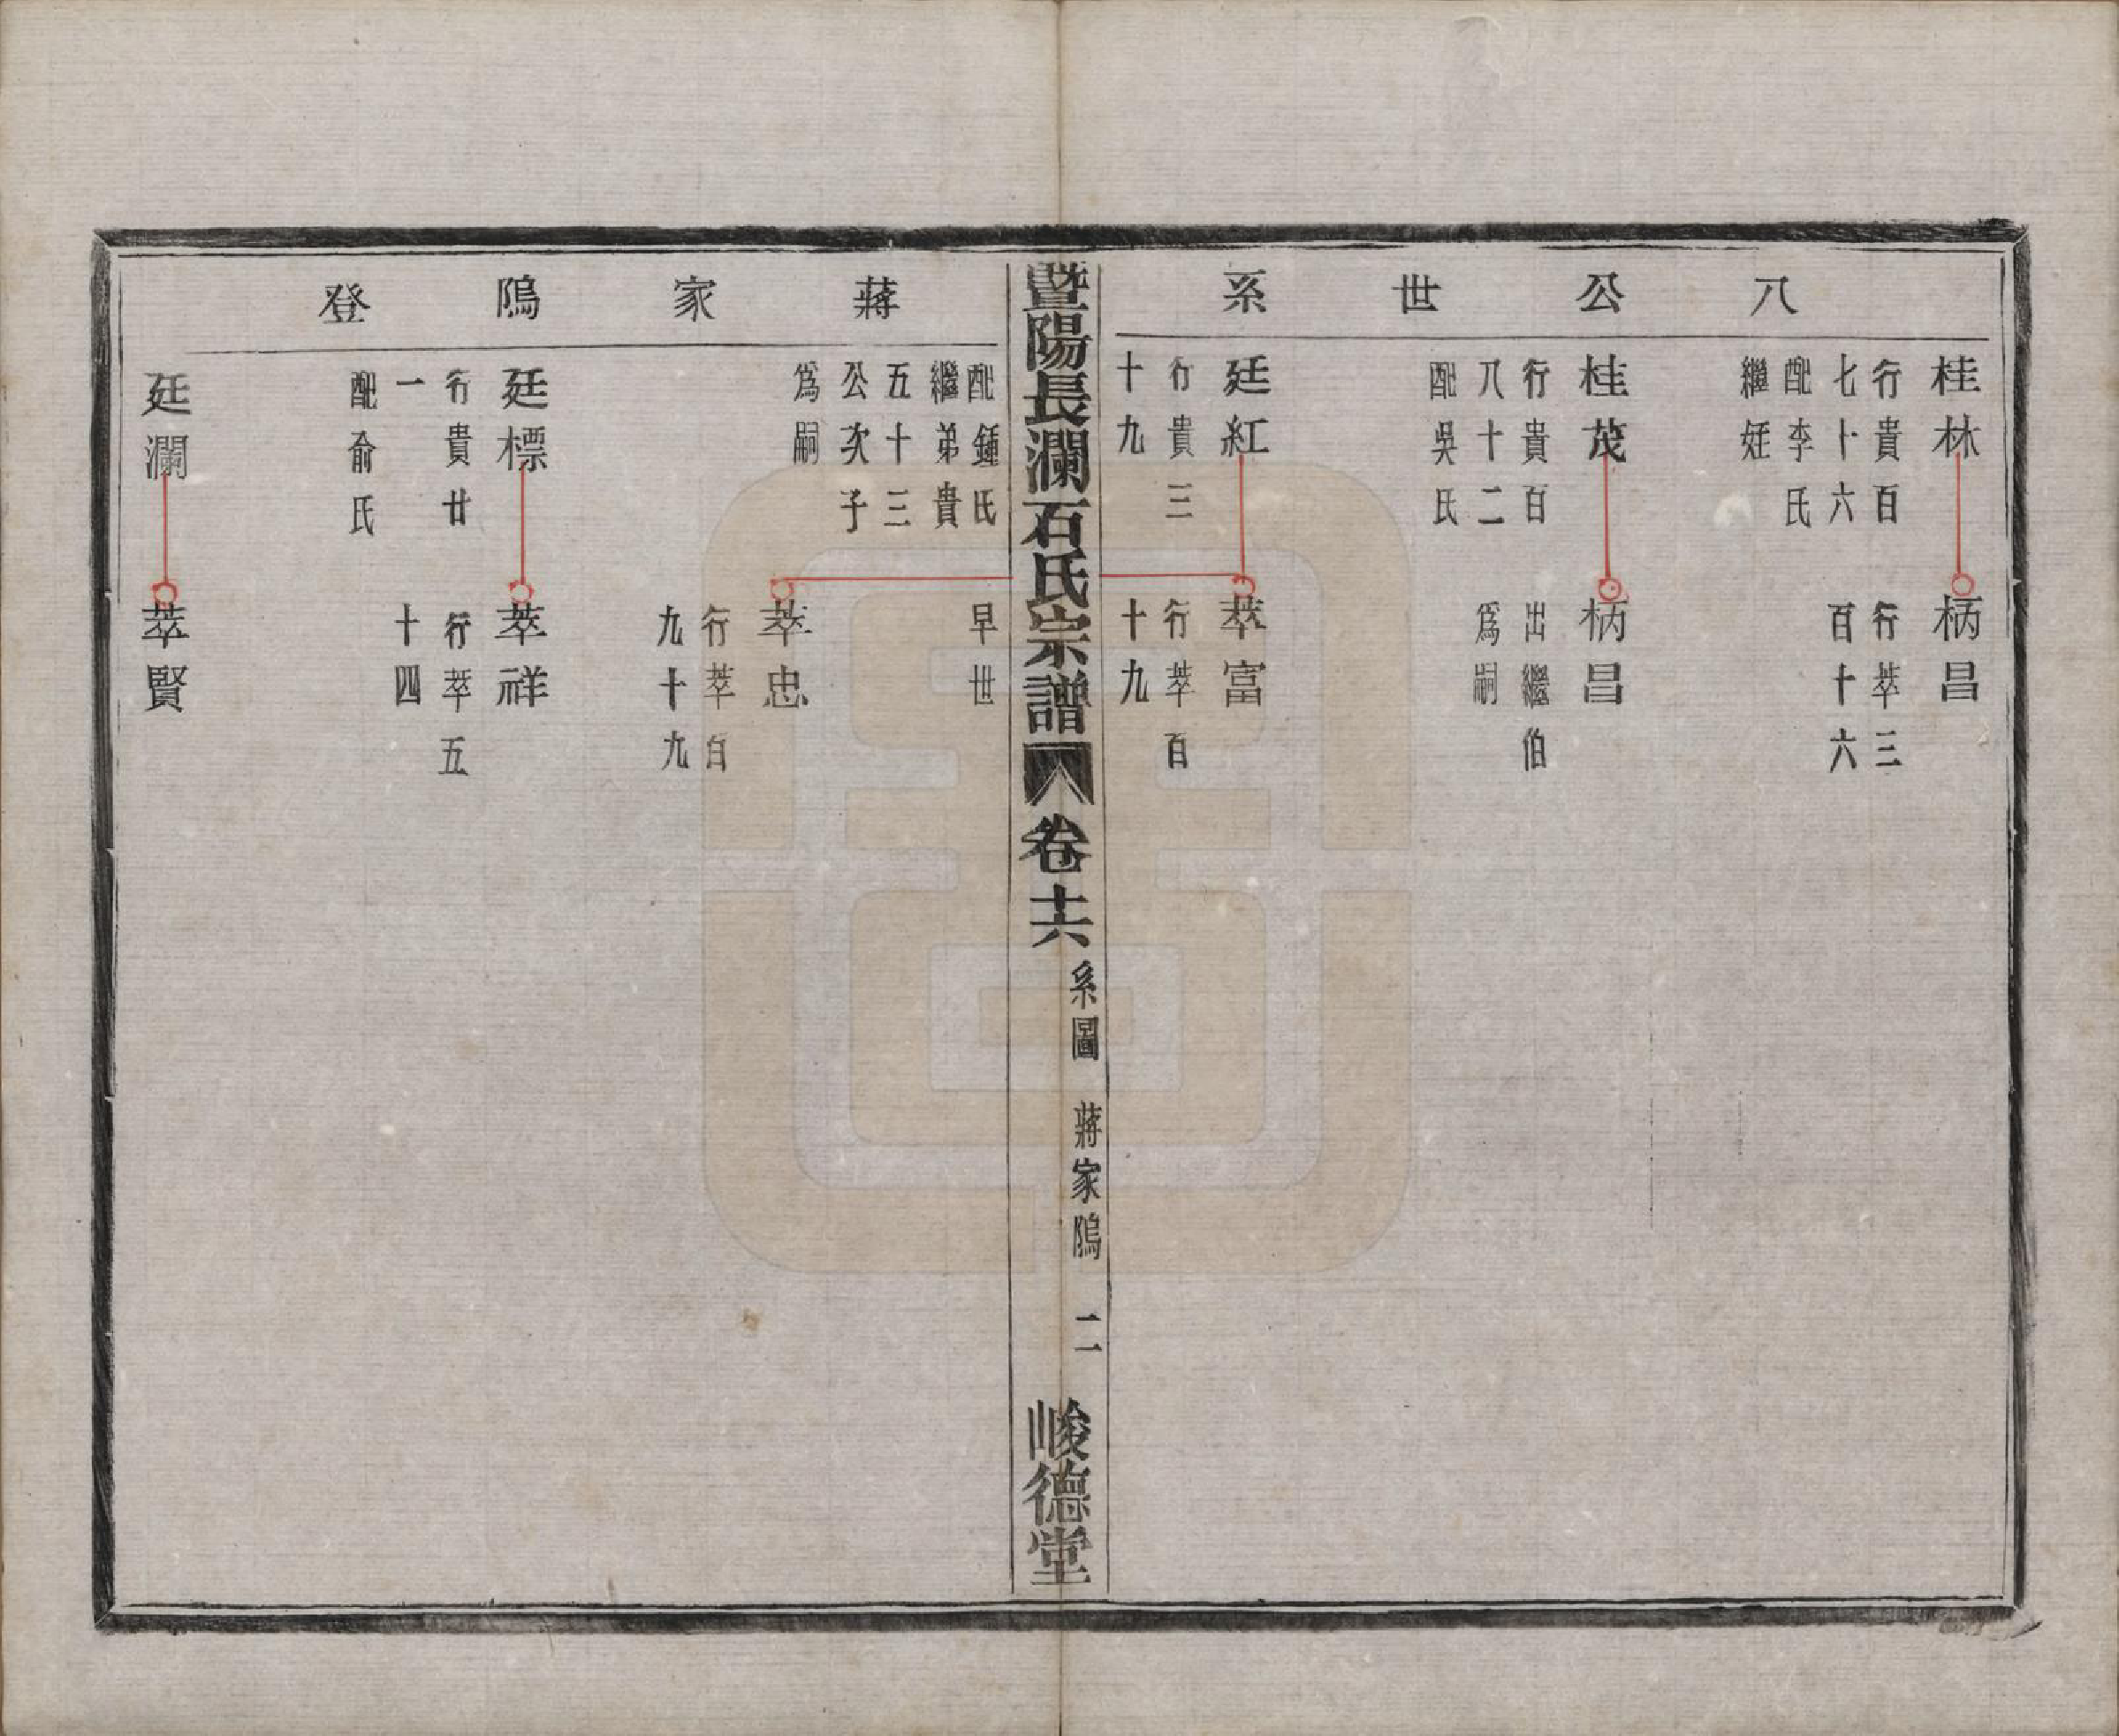 八公世系
桂林
行貴百
七十六
配李氏
繼妊
柄昌
行萃三
百十六
桂茂
行貴百
八十二
配吳氏
柄昌
出繼伯
爲嗣
廷紅
行貴三
十九
萃富
行萃百
十九
暨陽長瀾石氏宗譜
卷十六
系圖 蔣家隝 二
峻德堂
蔣家隝登
配鍾氏
繼弟貴
五十三
公次子
爲嗣
早世
萃忠
行萃百
九十九
廷標
行貴廿
一
配俞氏
萃祥
行萃五
十四
廷瀾
萃賢